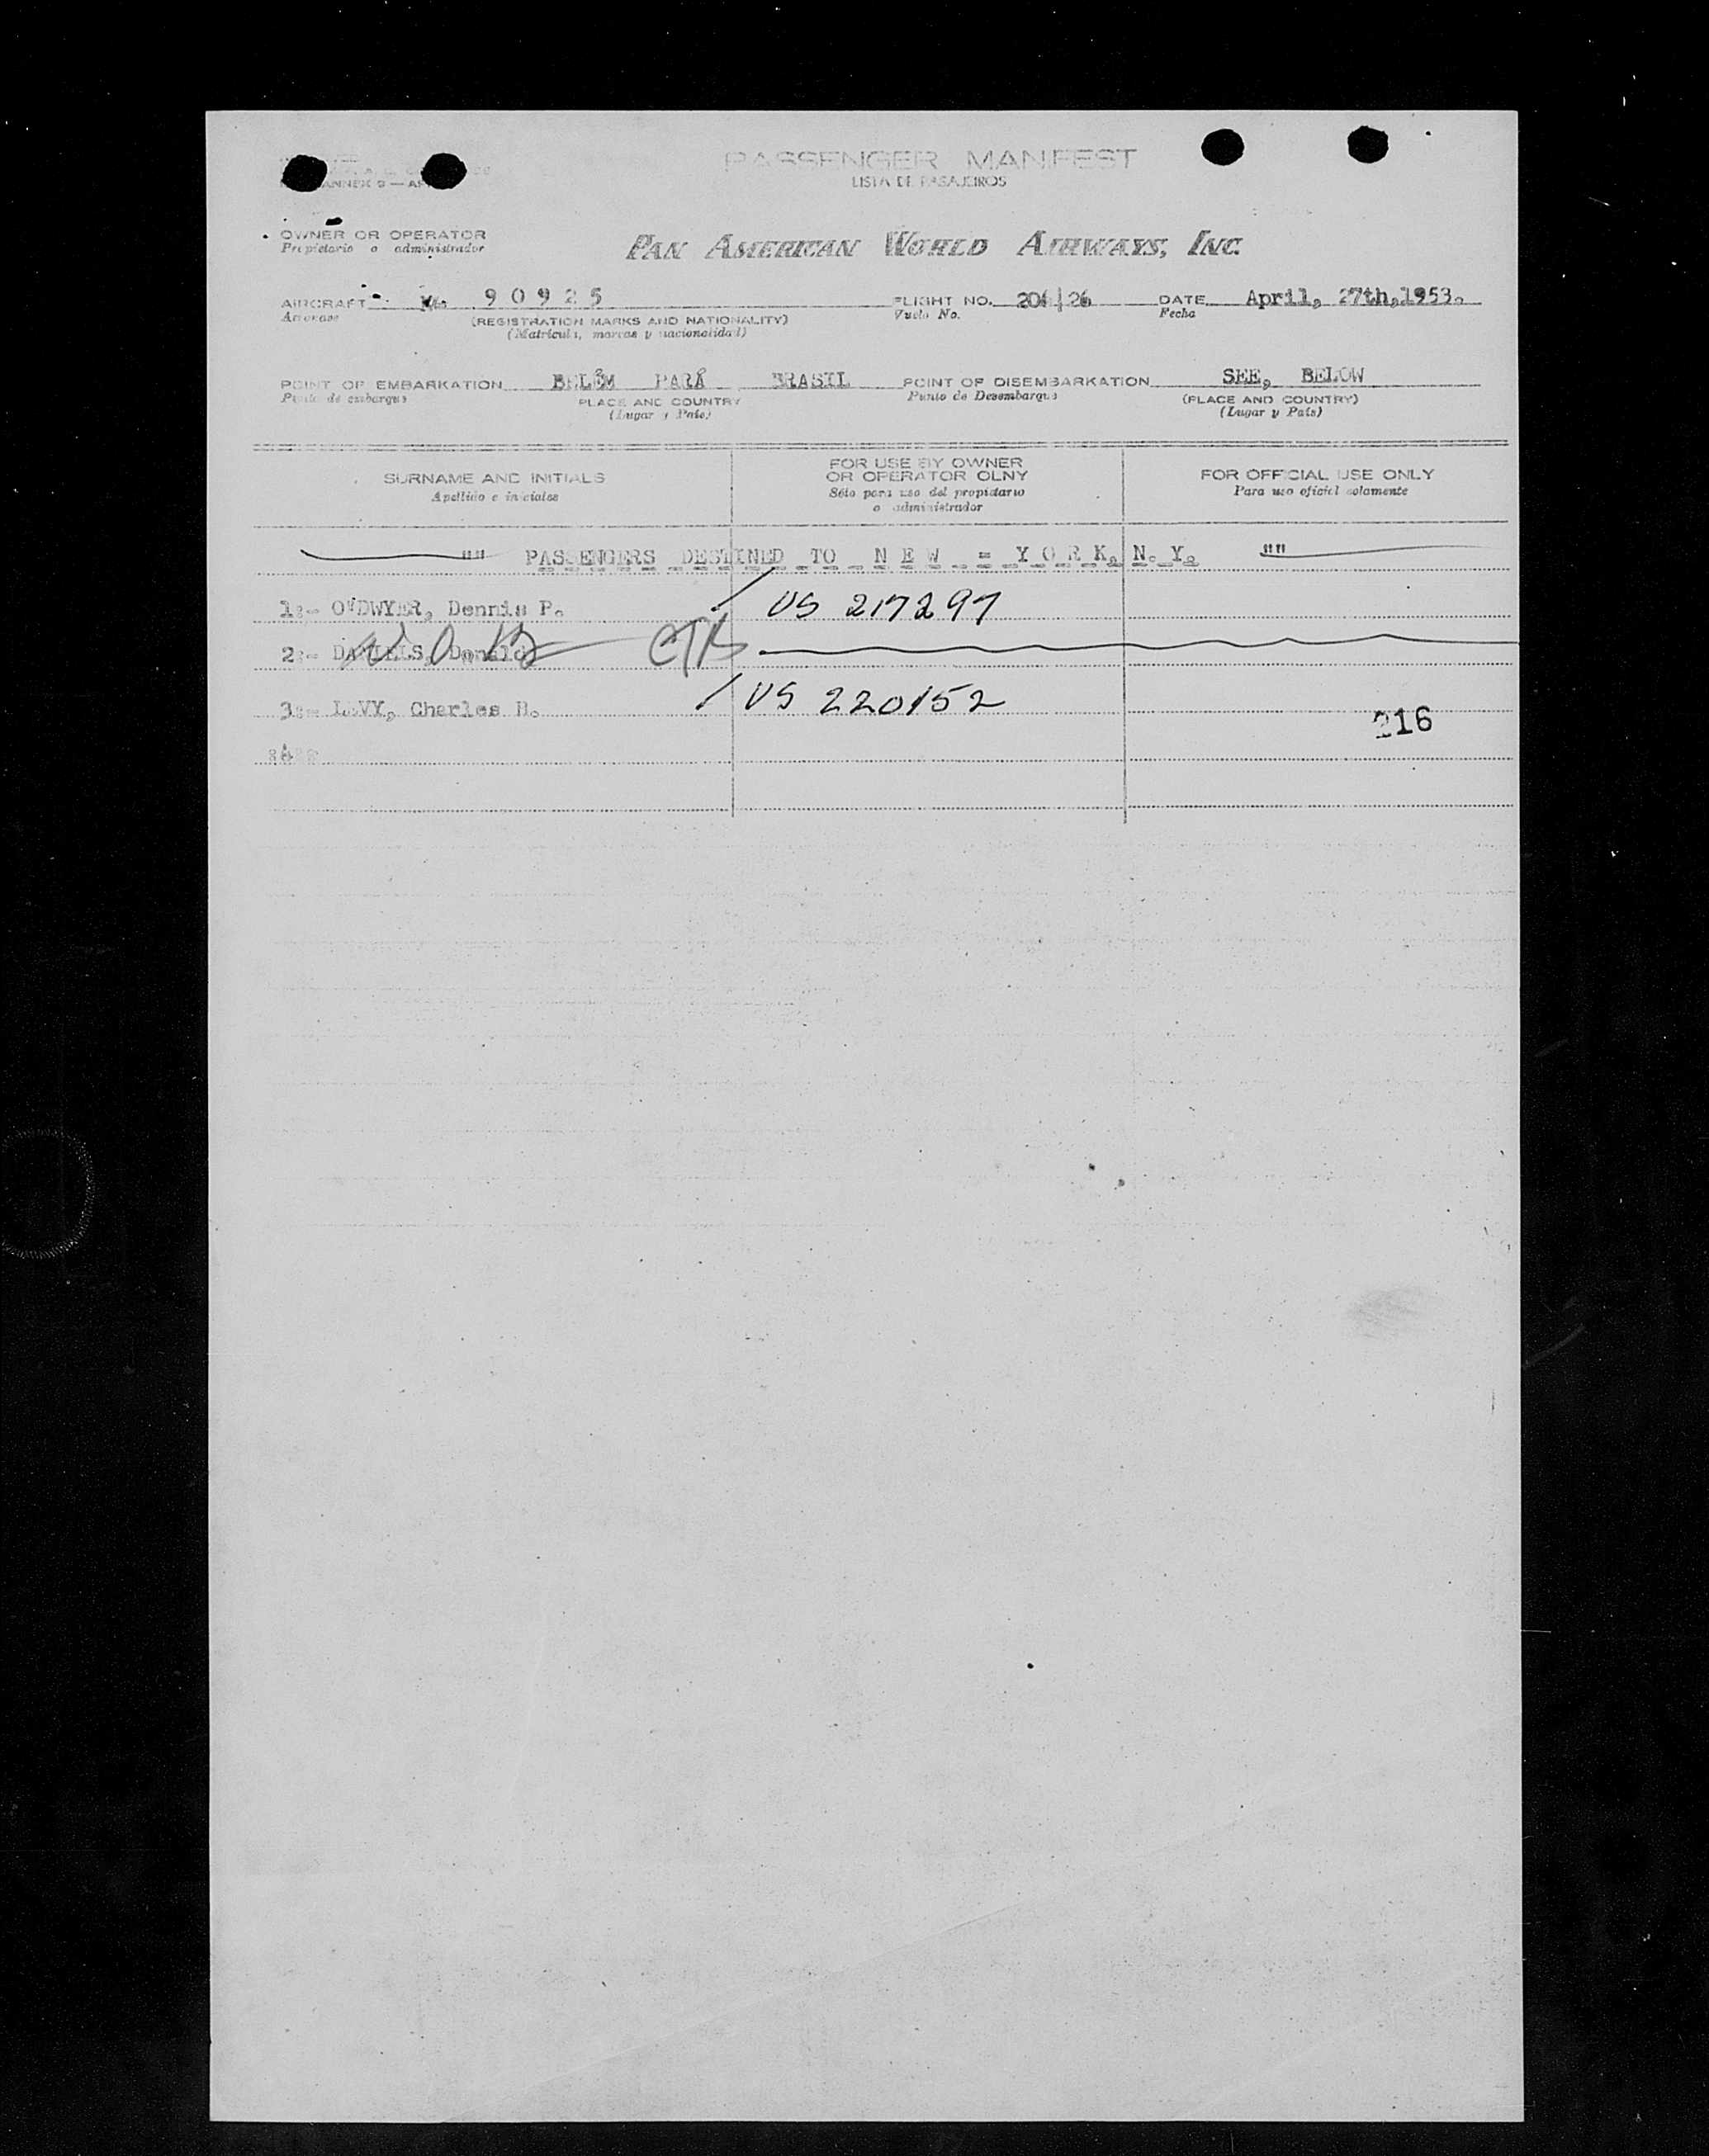 ANNEX 9 —
PASSENGER MANIFEST
LISTA DE PASAJEIROS
OWNER OR OPERATOR
Propietario o administrador
PAN AMERICAN WORLD AIRWAYS, INC.
AIRCRAFT 90925 FLIGHT NO. 206|26 DATE April, 27th,1953.
Aeronave (REGISTRATION MARKS AND NATIONALITY) Vuelo No. Fecha
(Matricula, marcas y nacionalidad)
POINT OF EMBARKATION BELÉM PARÁ BRASIL POINT OF DISEMBARKATION SEE, BELOW
Punto de embarque PLACE AND COUNTRY Punto de Desembarque (PLACE AND COUNTRY)
(Lugar y País) (Lugar y País)
SURNAME AND INITIALS
Apellido e iniciales
FOR USE BY OWNER
OR OPERATOR OLNY
Sólo para uso del propietario
o administrador
FOR OFFICIAL USE ONLY
Para uso oficial solamente
"" PASSENGERS DESTINED TO NEW = YORK, N. Y. ""
1:- O'DWYER, Dennis P. US 217297
2:- DANIELS, Donald
3:- LEVY, Charles H. US 220152
216